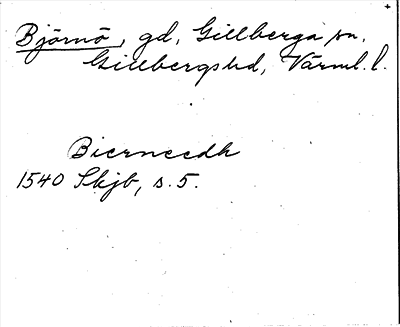 Björnö, gd, Gillberga sn,
Gillbergs hd, Värml. l.
Bierneedh
1540 Skjb, s. 5.